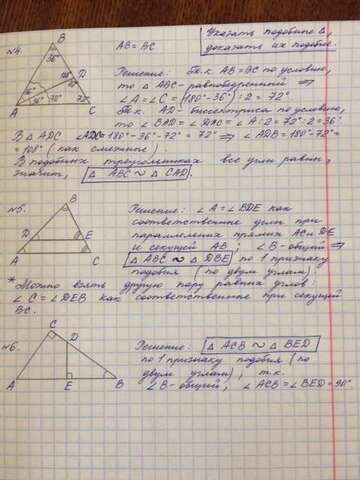 Указать подобные Δ,
доказать их подобие.
№4.
B
AB = BC
36°
D
108°
72°
36°
36°
72°
72°
A
C
Решение: Т.к. AB = BC по условию,
то Δ ABC - равнобедренный ⇒
∠A = ∠C = (180° - 36°) : 2 = 72°
Т.к. AD - биссектриса по условию,
то ∠BAD = ∠DAC = ∠A : 2 = 72° : 2 = 36°
В Δ ADC ∠ADC = 180° - 36° - 72° = 72° ⇒ ∠ADB = 180° - 72° =
= 108° (как смежные).
В подобных треугольниках все углы равны,
значит, Δ ABC ~ Δ CAD.
№5.
B
D
E
A
C
Решение: ∠A = ∠BDE как
соответственные углы при
параллельных прямых AC и DE
и секущей AB; ∠B - общий ⇒
Δ ABC ~ Δ DBE по 1 признаку
подобия (по двум углам)
* Можно взять другую пару равных углов:
∠C = ∠DEB как соответственные при секущей
BC.
№6.
C
D
A
E
B
Решение: Δ ACB ~ Δ BED
по 1 признаку подобия (по
двум углам), т.к.
∠B - общий, ∠ACB = ∠BED = 90°